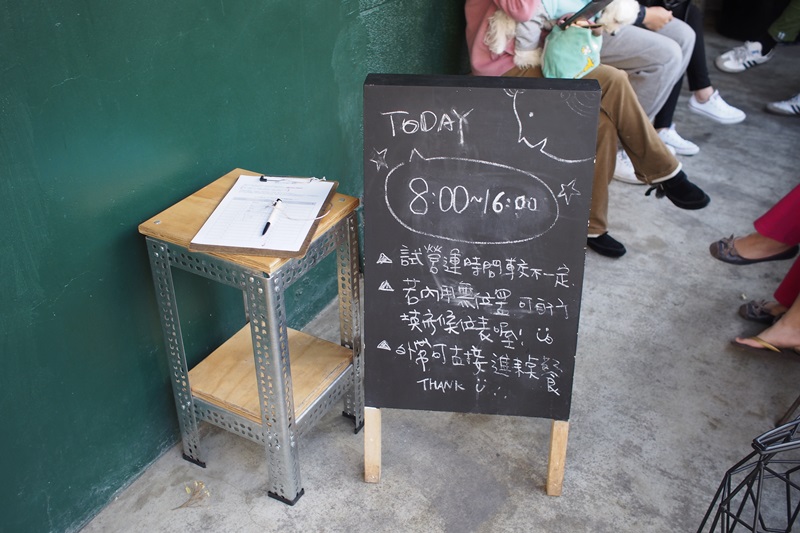 TODAY
8:00~16:00
試營運時間較不一定.
若內用無位置 可自行
填寫候位表喔!
外帶可直接進來點餐
THANK